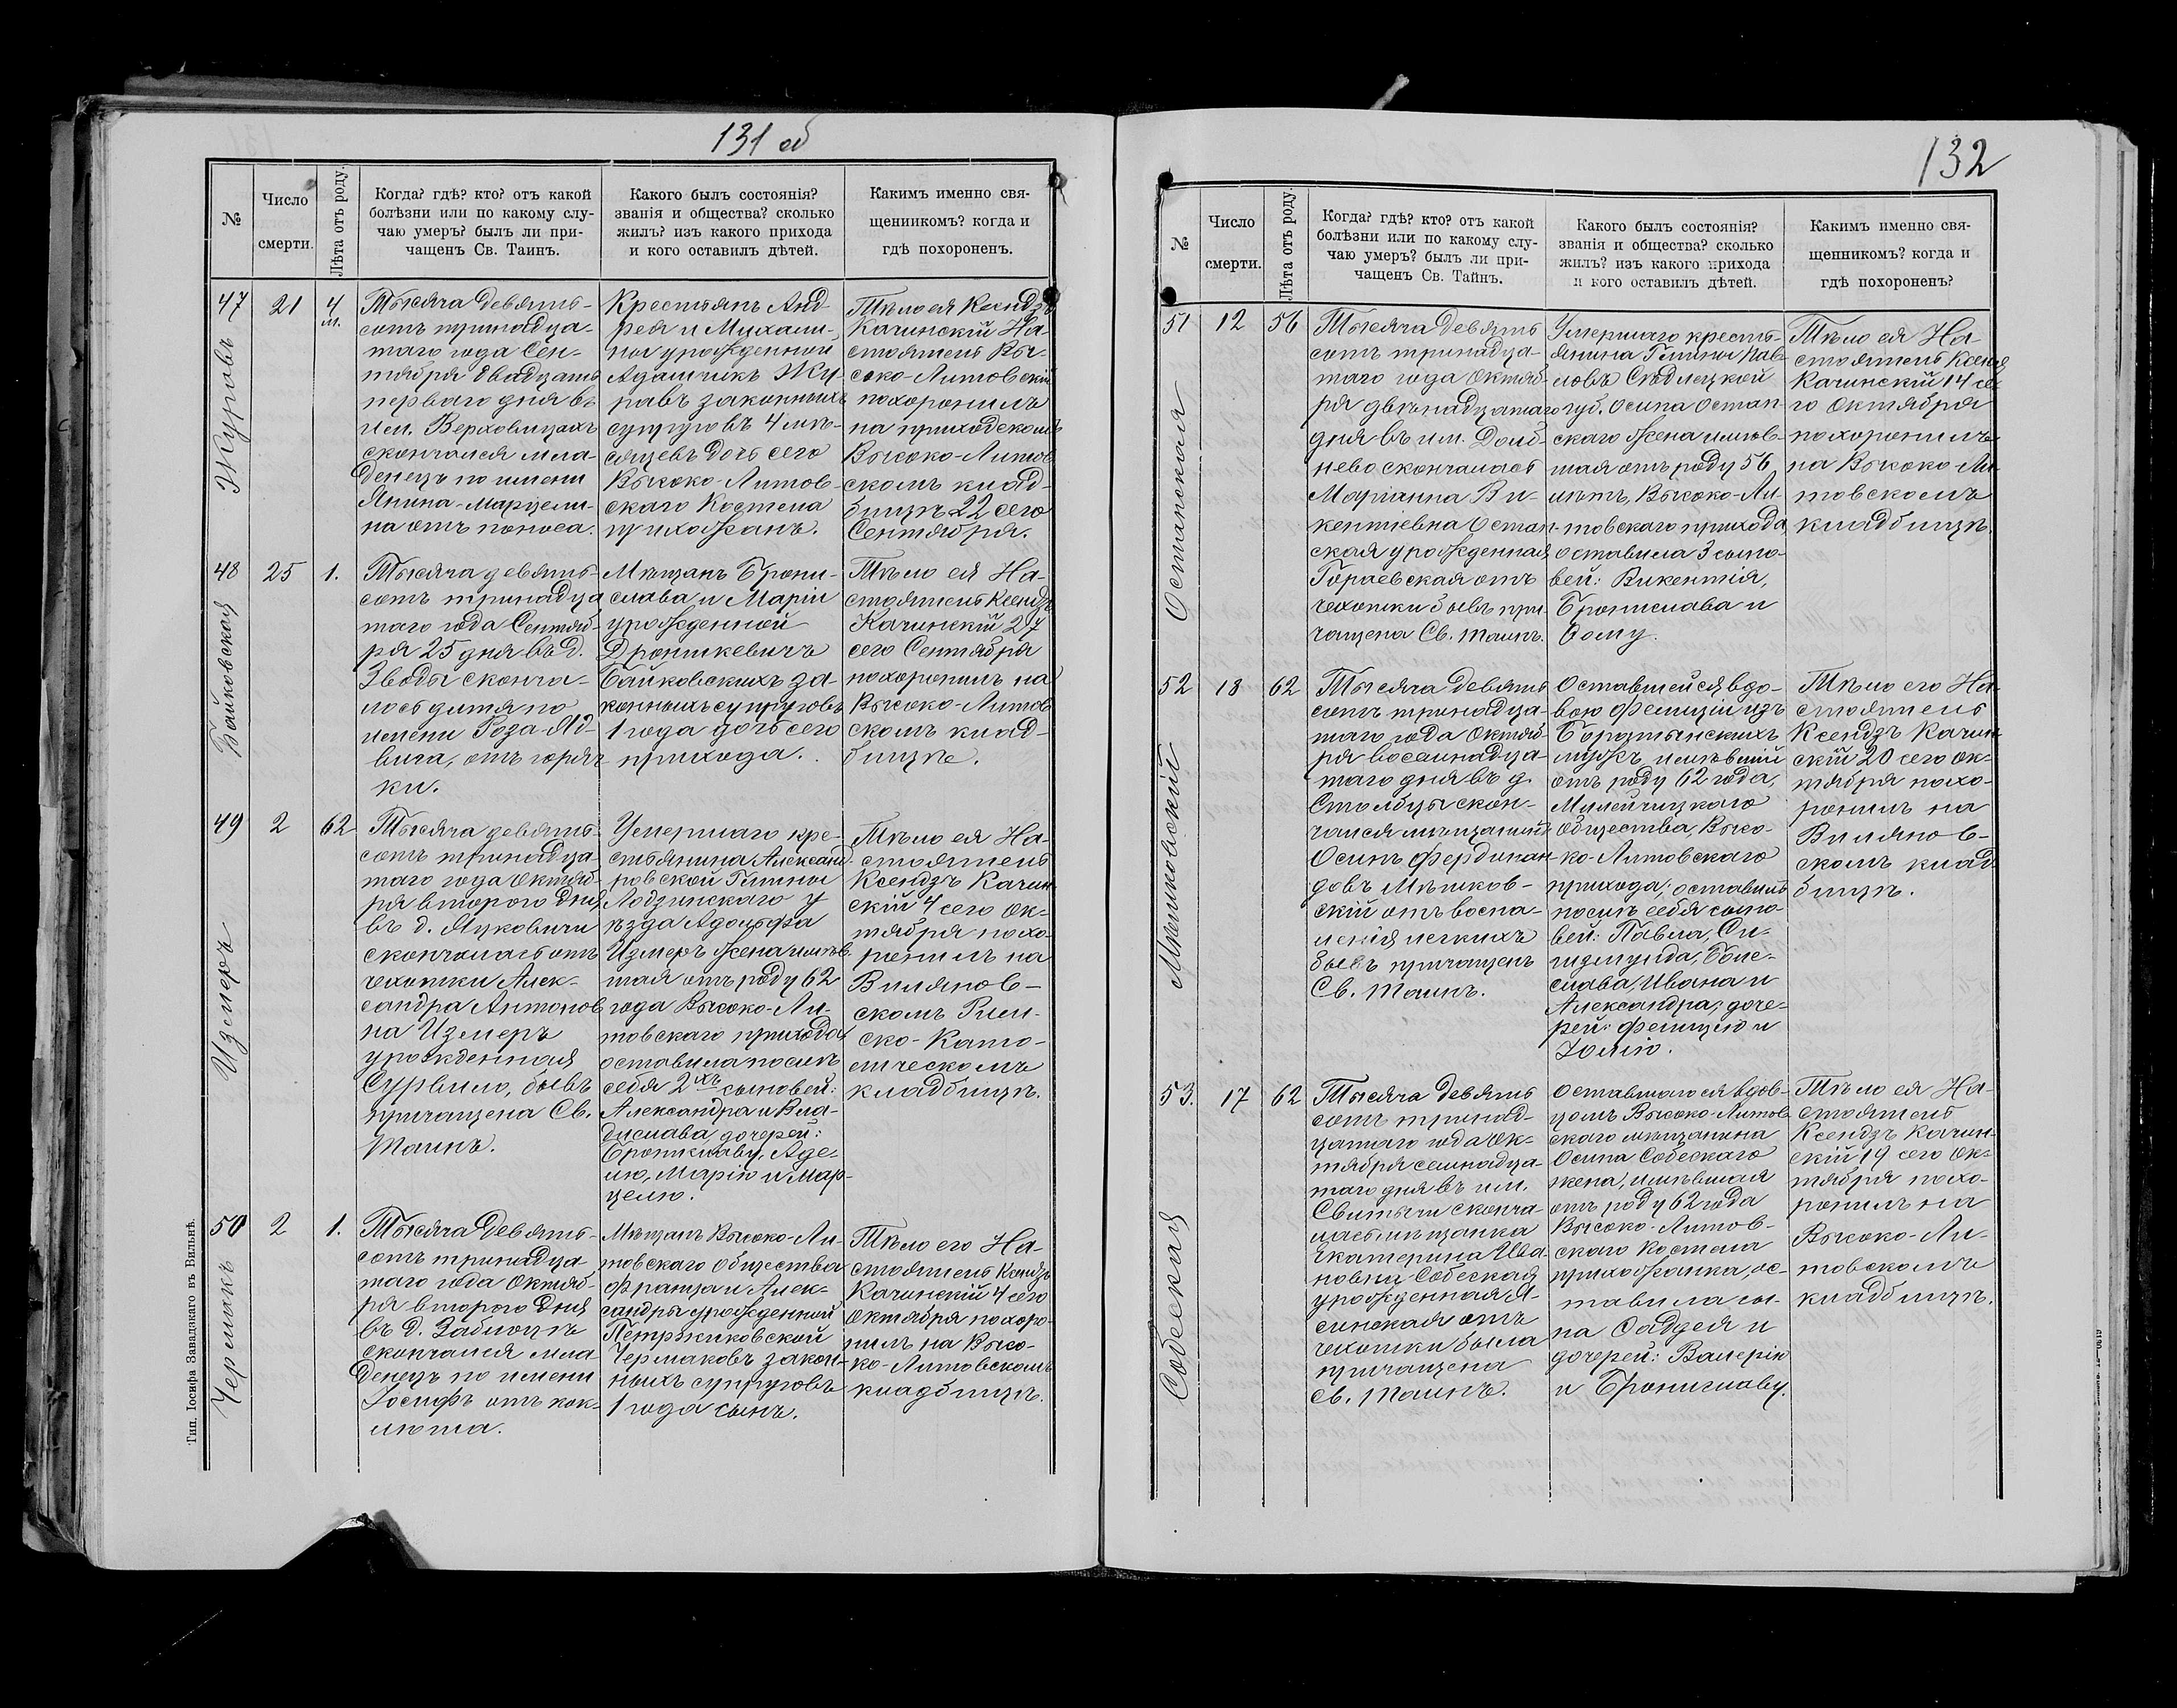 131 об
№
Число
смерти.
Лѣта отъ роду.
Когда? гдѣ? кто? отъ какой
болѣзни или по какому слу-
чаю умеръ? былъ ли при-
чащенъ Св. Таинъ.
Какого былъ состоянія?
званія и общества? сколько
жилъ? изъ какого прихода
и кого оставилъ дѣтей.
Какимъ именно свя-
щенникомъ? когда и
гдѣ похороненъ.
47
Журовъ
21
4
м.
Тысяча девять-
сотъ тринадца-
таго года Сен-
тября двадцать
перваго дня въ
им. Верховицахъ
скончался мла-
денецъ по имени
Янина-Марцели-
на отъ поноса.
Крестьянъ Анд
рея и Михали-
ны урожденной
Адамчикъ Жу-
равъ законныхъ
супруговъ 4 мѣ-
сяцевъ дочь сего
Высоко-Литов-
скаго Костела
прихожанъ.
Тѣло ея Ксендзъ
Качинскій На-
стоятель Вы-
соко-Литовскій
похоронилъ
на приходскомъ
Высоко-Литов
скомъ клад-
бищѣ 22 сего
Сентября.
48
Байковская
25
1.
Тысяча девять-
сотъ тринадца
таго года Сентяб-
ря 25 дня въ д.
Зводы сконча-
лось дитя по
имени Роза-Яд-
вига, отъ горяч
ки.
Мѣщанъ Брони-
слава и Маріи
урожденной
Дроникевичъ
Байковскихъ за-
конныхъ супруговъ
1 года дочь сего
прихода.
Тѣло ея На-
стоятель Ксендзъ
Качинскій 27
сего Сентября
похоронилъ на
Высоко-Литов
скомъ клад-
бищѣ.
49
Измеръ
2
62
Тысяча девять-
сотъ тринадца-
таго года Октяб-
ря второго дня
въ д. Яцковичи
скончалась отъ
чехотки Алек-
сандра Антонов
на Измеръ
урожденная
Сурвило, бывъ
причащена Св.
Таинъ.
Умершаго кре-
стьянина Александ-
ровской Гмины
Лодзинскаго у
ѣзда Адольфа
Измеръ жена имѣв-
шая отъ роду 62
года Высоко-Ли-
товскаго прихода
оставила послѣ
себя 2хъ сыновей:
Александра и Вла-
дислава, дочерей:
Брониславу, Аде-
лю, Марію и Мар-
целю.
Тѣло ея На-
стоятель
Ксендзъ Качин
скій 4 сего Ок-
тября похо-
ронилъ на
Вилянов-
скомъ Рим-
ско-Като-
лическомъ
кладбищѣ.
50
Чермакъ
2
1.
Тысяча девять-
сотъ тринадца
таго года Октяб-
ря второго дня
въ д. Заблоцѣ
скончался мла
денецъ по имени
Іосифъ отъ кок-
люша.
Мѣщанъ Высоко-Ли-
товскаго общества
Франца и Алек-
сандры урожденной
Петржиковской
Чермаковъ закон-
ныхъ супруговъ
1 года сынъ.
Тѣло его На-
стоятель Ксендзъ
Качинскій 4 сего
Октября похоро-
нилъ на Высо-
ко-Литовскомъ
кладбищѣ.
Тип. Іосифа Завадзкаго въ Вильнѣ.
132
№
Число
смерти.
Лѣта отъ роду.
Когда? гдѣ? кто? отъ какой
болѣзни или по какому слу-
чаю умеръ? былъ ли при-
чащенъ Св. Тайнъ.
Какого былъ состоянія?
званія и общества? сколько
жилъ? изъ какого прихода
и кого оставилъ дѣтей.
Какимъ именно свя-
щенникомъ? когда и
гдѣ похороненъ?
51
Останская
12
56
Тысяча девять
сотъ тринадца-
таго года Октяб-
ря двѣнадцатаго
дня въ им. Домб-
нево скончалась
Маріанна Ви-
кентіевна Остан-
ская урожденная
Гораевская отъ
чехотки бывъ при-
чащена Св. Таинъ.
Умершаго кресть-
янина Гмины Пав-
ловъ Сѣдлецкой
губ. Осипа Остан-
скаго жена имѣв-
шая отъ роду 56
лѣтъ, Высоко-Ли-
товскаго прихода,
оставила 3 сыно-
вей: Викентія,
Бронислава и
Ѳому.
Тѣло ея На-
стоятель Ксендз
Качинскій 14 се-
го Октября
похоронилъ
на Высоко-Ли-
товскомъ
кладбищѣ.
52
Мѣшковскій
18
62
Тысяча девять
сотъ тринадца-
таго года Октяб-
ря восемнадца-
таго дня въ д.
Столбцы скон-
чался мѣщанинъ
Осипъ Фердинан-
довъ Мѣшков-
скій отъ воспа-
ленія легкихъ
бывъ причащенъ
Св. Таинъ.
Оставшейся вдо-
вою Фелиціи изъ
Боратынскихъ
мужъ имѣвшій
отъ роду 62 года,
Милейчицкаго
общества, Высо-
ко-Литовскаго
прихода, оставилъ
послѣ себя сыно-
вей: Павла, Си-
гизмунда, Боле-
слава, Ивана и
Александра, доче-
рей: Фелицію и
Юлію.
Тѣло его На-
стоятель
Ксендзъ Качин
скій 20 сего Ок-
тября похо-
ронилъ на
Вилянов-
скомъ клад
бищѣ.
53.
Собеская
17
62
Тысяча девять
сотъ тринад-
цатаго года Ок-
тября семнадца-
таго дня въ им.
Свитычи сконча
лась мѣщанка
Екатерина Ива-
новна Собеская
урожденная Я-
синская отъ
чехотки была
причащена
Св. Таинъ.
Оставшагося вдов-
цомъ Высоко-Литов
скаго мѣщанина
Осипа Собескаго
жена, имѣвшая
отъ роду 62 года
Высоко-Литов-
скаго Костела
прихожанка, ос-
тавила сы-
на Ѳаддея и
дочерей: Валерію
и Брониславу.
Тѣло ея На-
стоятель
Ксендзъ Качин-
скій 19 сего Ок-
тября похо-
ронилъ на
Высоко-Ли-
товскомъ
кладбищѣ.